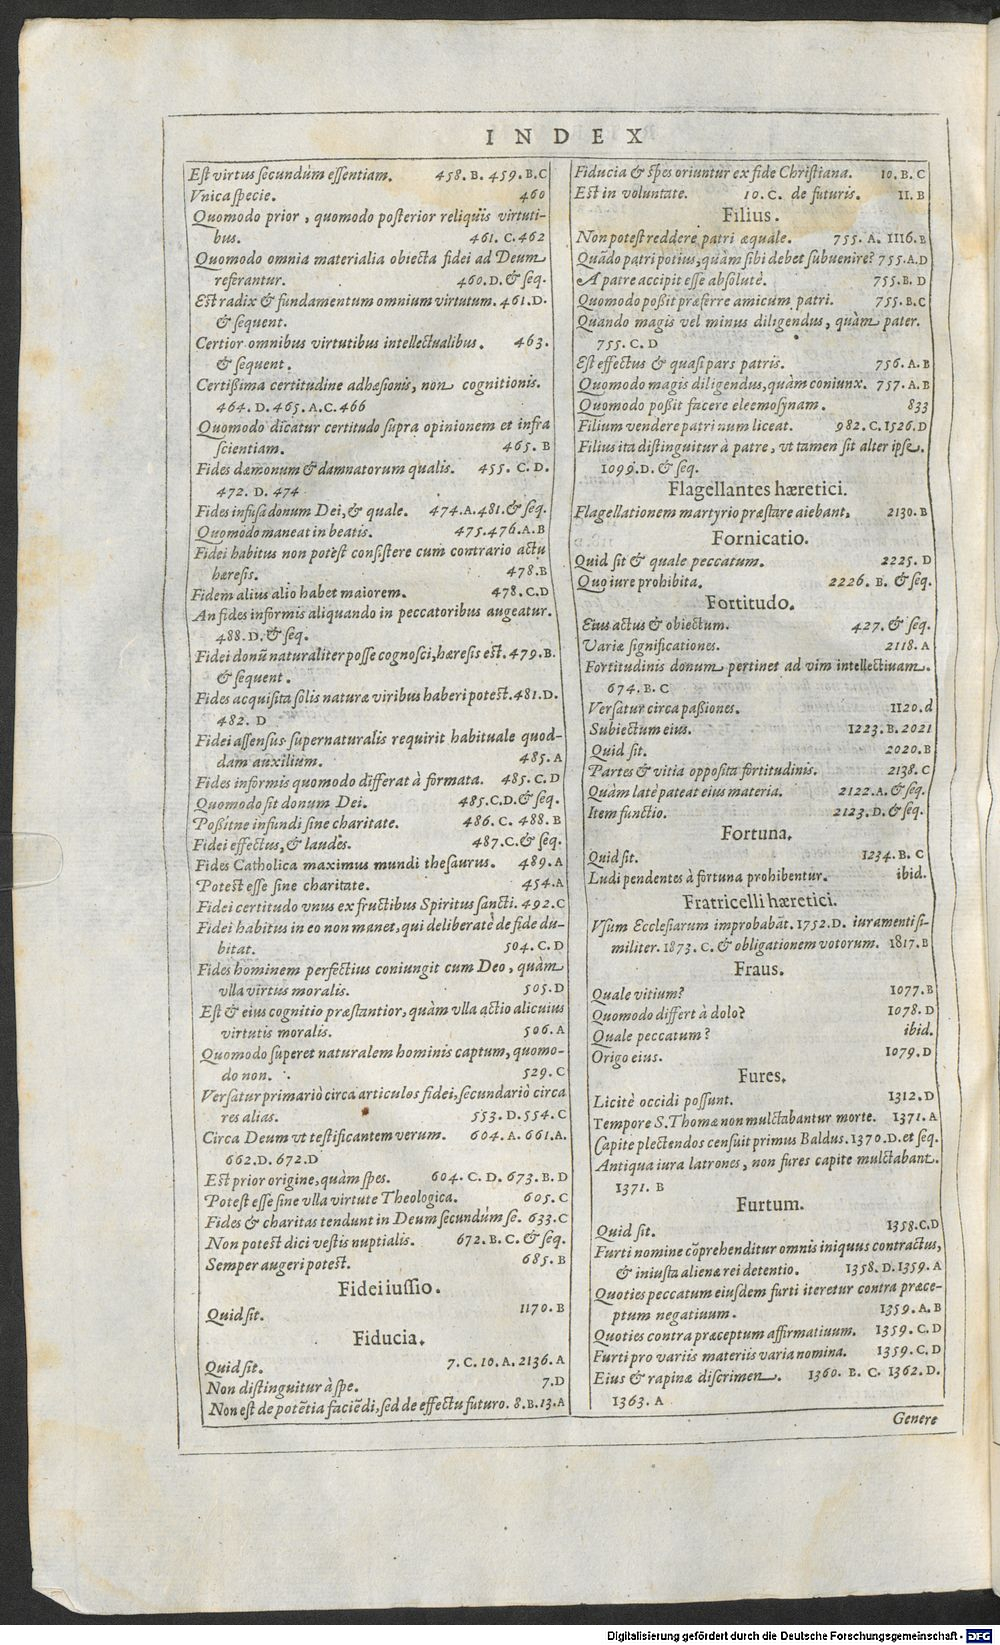 INDEX
Est virtus secundùm essentiam. 458. B. 459. B.C
Vnica specie. 460
Quomodo prior, quomodo posterior reliquis virtuti-
bus. 461. C. 462
Quomodo omnia materialia obiecta fidei ad Deum
referantur. 460. D. & seq.
Est radix & fundamentum omnium virtutum. 461. D.
& sequent.
Certior omnibus virtutibus intellectualibus. 463.
& sequent.
Certißima certitudine adhæsionis, non cognitionis.
464. D. 465. A.C. 466
Quomodo dicatur certitudo supra opinionem et infra
scientiam. 465. B
Fides dæmonum & damnatorum qualis. 455. C. D.
472. D. 474
Fides infusa donum Dei, & quale. 474. A. 481. & seq.
Quomodo maneat in beatis. 475. 476. A. B
Fidei habitus non potest consistere cum contrario actu
hæresis. 478. B
Fidem alius alio habet maiorem. 478. C. D
An fides informis aliquando in peccatoribus augeatur.
488. D. & seq.
Fidei donū naturaliter posse cognosci, hæresis est. 479. B.
& sequent.
Fides acquisita solis naturæ viribus haberi potest. 481. D.
482. D
Fidei assensus supernaturalis requirit habituale quod-
dam auxilium. 485. A
Fides informis quomodo differat à formata. 485. C. D
Quomodo sit donum Dei. 485. C. D. & seq.
Poßitne infundi sine charitate. 486. C. 488. B
Fidei effectus, & laudes. 487. C. & seq.
Fides Catholica maximus mundi thesaurus. 489. A
Potest esse sine charitate. 454. A
Fidei certitudo vnus ex fructibus Spiritus sancti. 492. C
Fidei habitus in eo non manet, qui deliberatè de fide du-
bitat. 504. C. D
Fides hominem perfectius coniungit cum Deo, quàm
vlla virtus moralis. 505. D
Est & eius cognitio præstantior, quàm vlla actio alicuius
virtutis moralis. 506. A
Quomodo superet naturalem hominis captum, quomo-
do non. 529. C
Versatur primariò circa articulos fidei, secundariò circa
res alias. 553. D. 554. C
Circa Deum vt testificantem verum. 604. A. 661. A.
662. D. 672. D
Est prior origine, quàm spes. 604. C. D. 673. B. D
Potest esse sine vlla virtute Theologica. 605. C
Fides & charitas tendunt in Deum secundùm se. 633. C
Non potest dici vestis nuptialis. 672. B. C. & seq.
Semper augeri potest. 685. B
Fideiiussio.
Quid sit. 1170. B
Fiducia.
Quid sit. 7. C. 10. A. 2136. A
Non distinguitur à spe. 7. D
Non est de potētia faciēdi, sed de effectu futuro. 8. B. 13. A
Fiducia & spes oriuntur ex fide Christiana. 10. B. C
Est in voluntate. 10. C. de futuris. 11. B
Filius.
Non potest reddere patri æquale. 755. A. 1116. B
Quādo patri potius, quàm sibi debet subuenire? 755. A. D
A patre accipit esse absolutè. 755. B. D
Quomodo poßit præferre amicum patri. 755. B. C
Quando magis vel minus diligendus, quàm pater.
755. C. D
Est effectus & quasi pars patris. 756. A. B
Quomodo magis diligendus, quàm coniunx. 757. A. B
Quomodo poßit facere eleemosynam. 833
Filium vendere patri num liceat. 982. C. 1526. D
Filius ita distinguitur à patre, vt tamen sit alter ipse.
1099. D. & seq.
Flagellantes hæretici.
Flagellationem martyrio præstare aiebant. 2130. B
Fornicatio.
Quid sit & quale peccatum. 2225. D
Quo iure prohibita. 2226. B. & seq.
Fortitudo.
Eius actus & obiectum. 427. & seq.
Variæ significationes. 2118. A
Fortitudinis donum pertinet ad vim intellectiuam.
674. B. C
Versatur circa paßiones. 1120. d
Subiectum eius. 1223. B. 2021
Quid sit. 2020. B
Partes & vitia opposita fortitudinis. 2138. C
Quàm latè pateat eius materia. 2122. A. & seq.
Item functio. 2123. D. & seq.
Fortuna.
Quid sit. 1234. B. C
Ludi pendentes à fortuna prohibentur. ibid.
Fratricelli hæretici.
Vsum Ecclesiarum improbabāt. 1752. D. iuramenti si-
militer. 1873. C. & obligationem votorum. 1817. B
Fraus.
Quale vitium? 1077. B
Quomodo differt à dolo? 1078. D
Quale peccatum? ibid.
Origo eius. 1079. D
Fures.
Licitè occidi possunt. 1312. D
Tempore S. Thomæ non mulctabantur morte. 1371. A
Capite plectendos censuit primus Baldus. 1370. D. et seq.
Antiqua iura latrones, non fures capite mulctabant.
1371. B
Furtum.
Quid sit. 1358. C. D
Furti nomine cōprehenditur omnis iniquus contractus,
& iniusta alienæ rei detentio. 1358. D. 1359. A
Quoties peccatum eiusdem furti iteretur contra præce-
ptum negatiuum. 1359. A. B
Quoties contra præceptum affirmatiuum. 1359. C. D
Furti pro variis materiis varia nomina. 1359. C. D
Eius & rapinæ discrimen. 1360. B. C. 1362. D.
1363. A
Genere
Digitalisierung gefördert durch die Deutsche Forschungsgemeinschaft - DFG